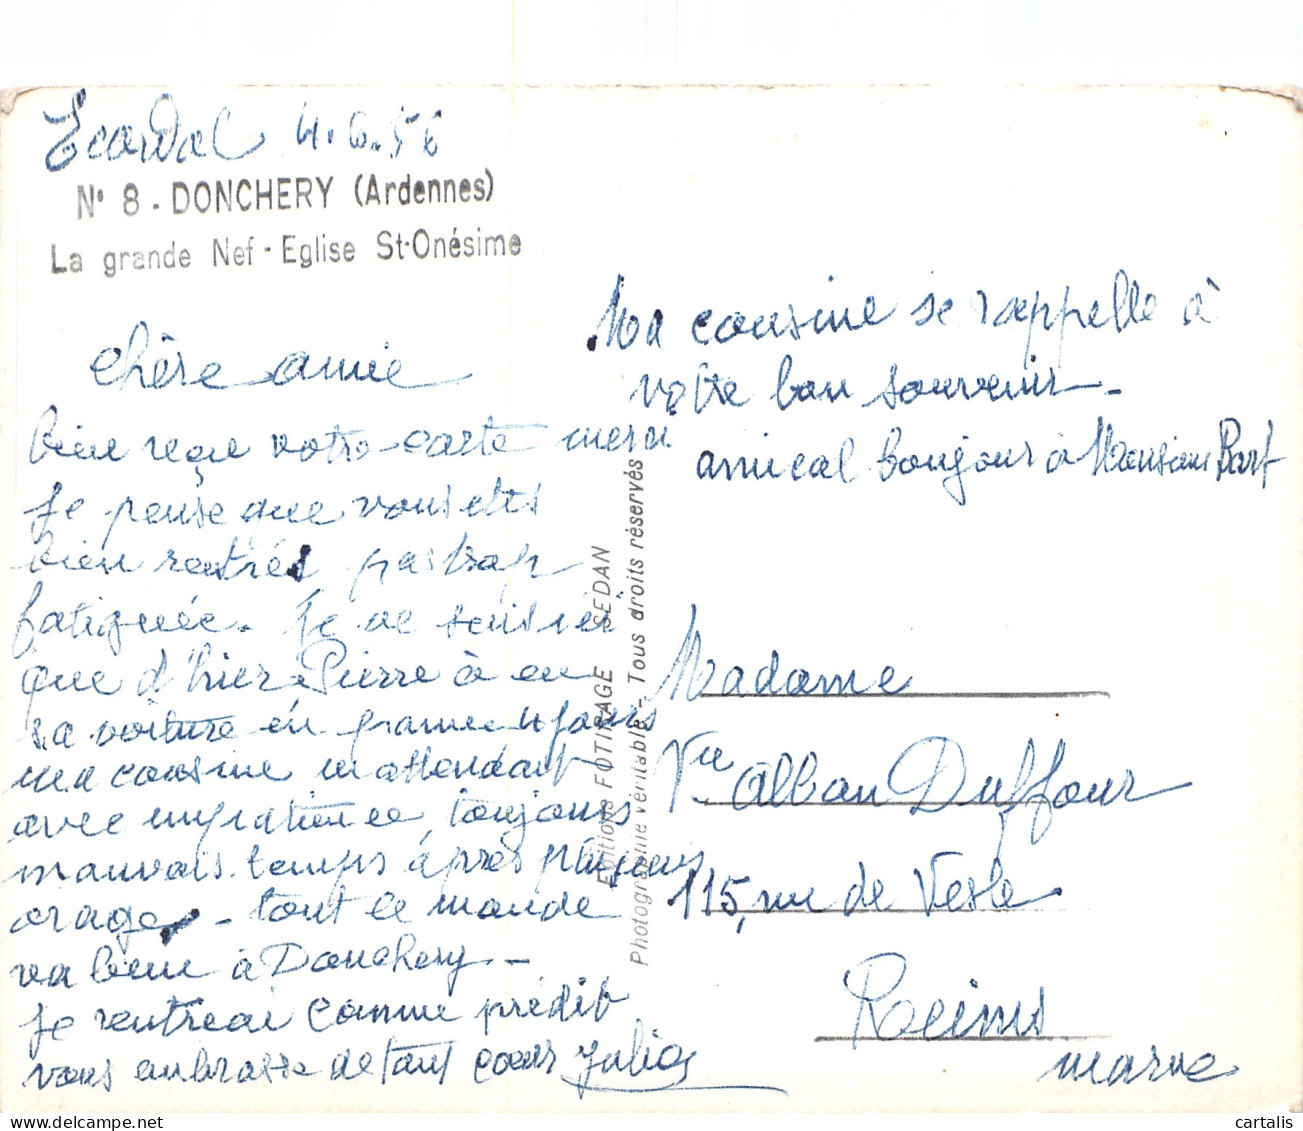 4.6.56
N° 8 - DONCHERY (Ardennes)
La grande Nef - Eglise St-Onésime
chère amie
bien reçue votre carte merci
je pense que vous etes
bien rentrés pas trop
fatiguée. Je ne suis ici
que d'hier Pierre à eu
sa voiture en panne 4 jours
ma cousine m'attendait
avec impatience, toujours
mauvais temps après plusieurs
orages - tout le monde
va bien à Donchery -
je rentrerai comme prédit
vous embrasse de tout cœur Julia
Ma cousine se rappelle à
votre bon souvenir -
amical bonjour à Monsieur
Editions FOTIRAGE SEDAN
Photographie véritable - Tous droits réservés
Madame
Vve Alban Duffour
115, rue de Vesle
Reims
Marne
cartalis